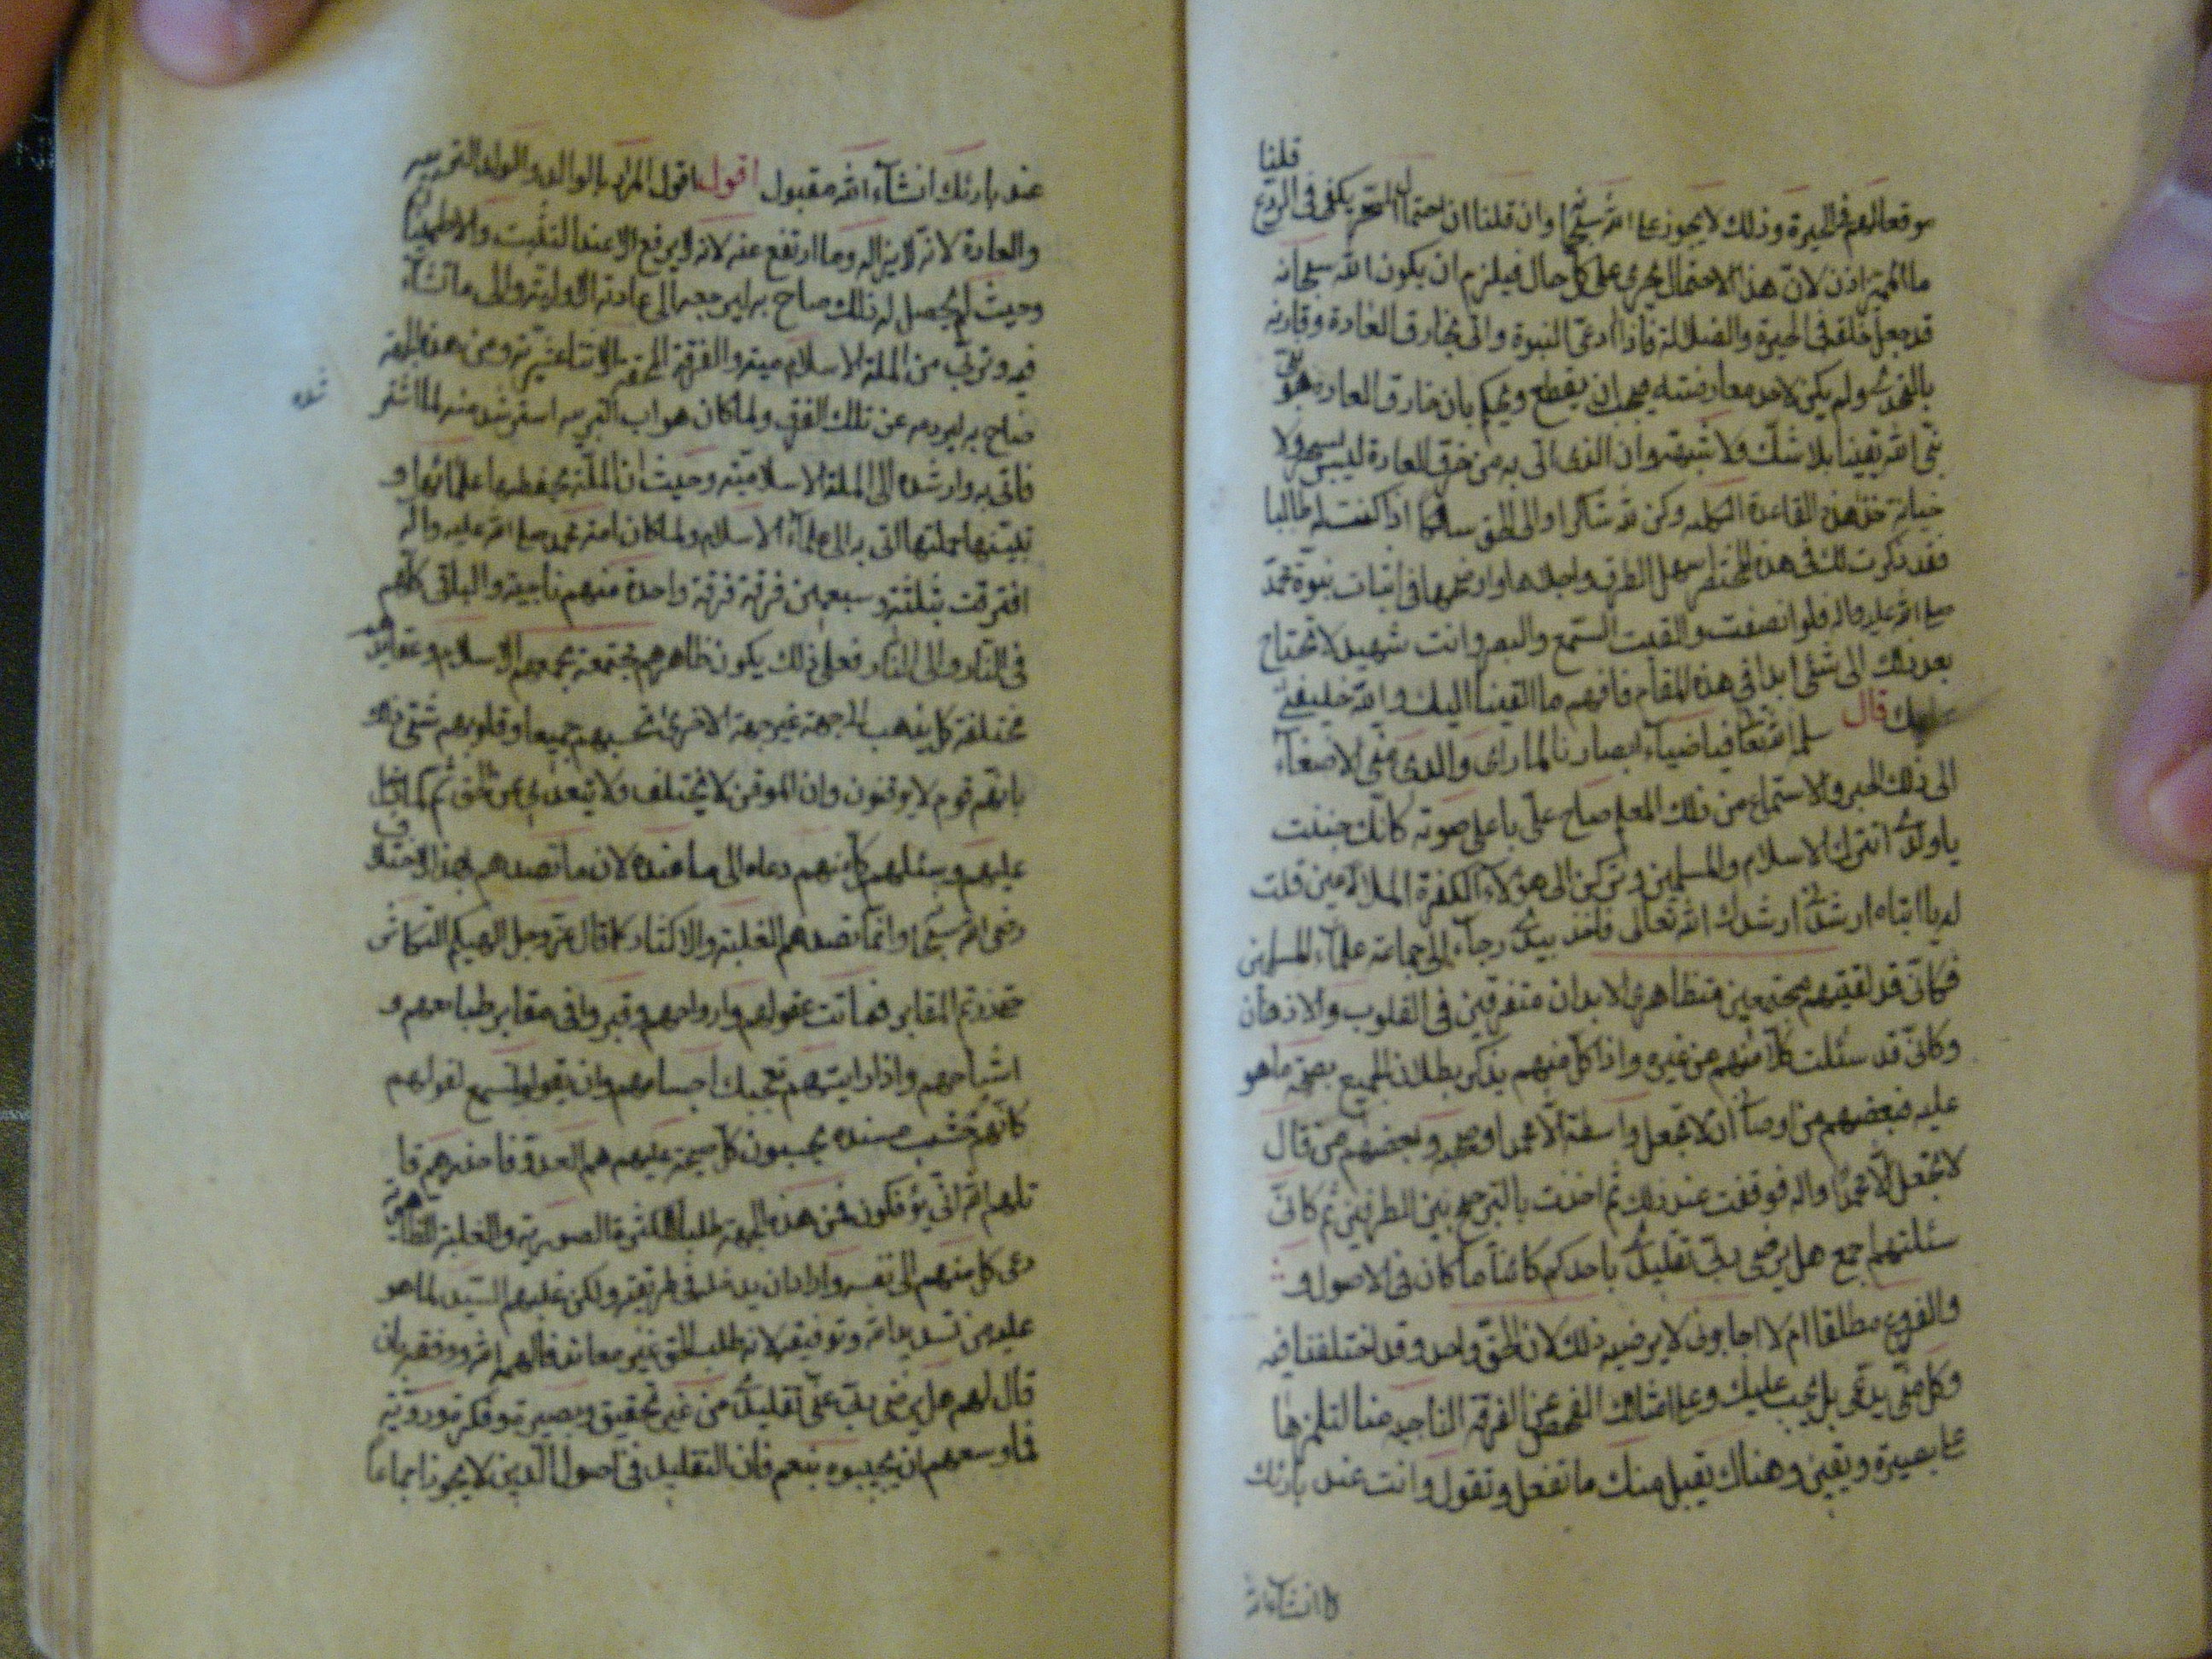 قلنا
موقعا لهم فى الحيرة وذلك لا يجوز على الله سبحانه وان قلنا ان احتمال السحر يكفى فى الردع
ما المميز اذن لان هذا الاحتمال يجرى على كل حال فيلزم ان يكون الله سبحانه
قد جعل خلقه فى الحيرة والضلالة فاذا ادعى النبوة واتى بخارق العادة وقارنه
بالتحدى ولم يكن لاحد معارضته يجب ان يقطع ويحكم بان خارق العادة هو
نبى الله يقينا بلا شك ولا شبهة وان الذى اتى به من خرق العادة ليس بسحر ولا
خذ هذه القاعدة الكلية وكن لله شاكرا والى الحق سالكا اذا كنت له طالبا
فقد ذكرت لك فى هذه المختصر اسهل الطرق واجلاها واوضحها فى اثبات نبوة محمد
صلى الله عليه واله فلو انصفت والقيت السمع والبصر وانت شهيد لا تحتاج
بعد ذلك الى شئ ابدا فى هذه المقام فافهم ما القينا اليك والله خليفتى
عليك قال سلمه الله تعالى فيا ضياء ابصارنا لما راى والدى منى الاصغاء
الى ذلك الحبر والاستماع من ذلك المعلم صاح على باعلى صوته كانك جننت
يا ولدى اتترك الاسلام والمسلمين وتركن الى هؤلاء الكفرة الملاعين قلت
له يا ابتاه ارشدنى ارشدك الله تعالى فاخذ بيدى وجاء الى جماعة علماء المسلمين
فكانى قد لقيتهم مجتمعين متظاهرى الابدان متفرقين فى القلوب والاذهان
وكانى قد سئلت كلا منهم عن غيره واذا كل منهم يذكر بطلان الجميع بصحة ما هو
عليه فبعضهم من اوصانى ان لا تجعل واسطة الا محمدا وبعضهم من قال
لا تجعل الا محمدا واله فوقفت عند ذلك ثم اخذت بالترجيح بين الطرفين ثم كانى
سئلتهم اجمع هل يرضى ربى تقليدى باحدكم كائنا ما كان فى الاصول و
والفروع مطلقا ام لا اجابونى لا يرضيه ذلك لان الحق واحد وقد اختلفنا فيه
وكل منا يدعى بل يجب عليك وعلى امثالك الفحص عن الفرقة الناجية منا لتلزمها
على بصيرة ويقين وهناك يقبل منك ما تفعل وتقول وانت عند بارئك
عند بارئك انشاء الله مقبول اقول اقول المراد بالوالد والولد التى يعبر
والعادة لانه لا يزاله وما ارتفع عنه لانه لا يرفع الا عند التثبت والاطمينان
وحيث لم يحصل له ذلك صاح به ليرجعه الى عادته الاولية والى ما نشاء
فيه وتربى من الملة الاسلامية والفرقة المحقة الاثنا عشرية ومن هذه الجهة
صاح به ليرده عن تلك الفرق ولما كان هو اب استرشد منه
فاتى به وارشده الى الملة الاسلامية وحيث ان الملة يحفظها علمائها و
اتى به الى علماء الاسلام ولما كان امة محمد صلى الله عليه واله
افترقت بثلثة وسبعين فرقة فرقة واحدة منهم ناجية والباقى كلهم
فى النار والى النار فعلى ذلك يكون ظاهرهم مجتمعة يجمعهم الاسلام وعقايدهم
مختلفة كل يذهب الى جهة غير جهة الاخرى تحسبهم جميعا وقلوبهم شتى ذلك
بانهم قوم لا يوقنون وان الموقن لا يختلف ولا يتعدى عن الحق ثم لما
عليهم وسئلهم كل منهم دعاه الى ما عنده لان ما قصدهم بهذا الاختلاف
رضى الله سبحانه وانما قصدهم الغلبة والاكثار كما قال عز وجل الهيكم التكاثر
حتى زرتم المقابر فماتت عقولهم وارواحهم وقبروا فى مقابر طبايعهم و
اشباحهم واذا رايتهم تعجبك اجسامهم وان يقولوا تسمع لقولهم
كانهم خشب مسندة يحسبون كل صيحة عليهم هم العدو فاحذرهم قا
تلهم الله انى يؤفكون فمن هذه الجهة طلبا للكثرة الصورية والغلبة الظاهرية
دعى كل منهم الى نفسه وارادان يدخله فى طريقته ولكن غلبهم السيد لما هو
عليه من تسديد الله وتوفيقه لانه طلب الحق غير معاند فالهمه الله ووفقه بان
قال لهم هل يرضى ربى عنى تقليدى من غير تحقيق وبصيرة وفكرة وروية
فما وسعهم ان يجيبوه بنعم فان التقليد فى اصول الدين لا يجوز اجماعا